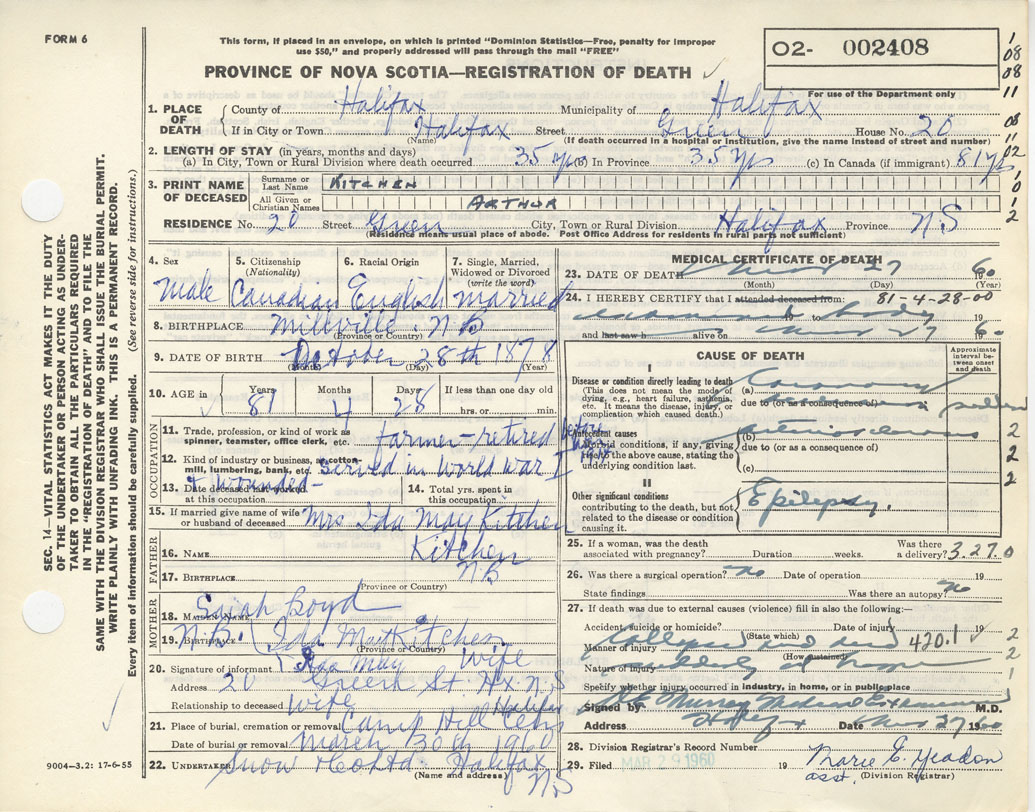 FORM 6
This form, if placed in an envelope, on which is printed "Dominion Statistics—Free, penalty for improper
use $50," and properly addressed will pass through the mail "FREE"
O2- 002408
PROVINCE OF NOVA SCOTIA—REGISTRATION OF DEATH
For use of the Department only
1
08
08
11
08
11
02
1
0
1
2
1. PLACE OF DEATH
County of Halifax Municipality of Halifax
If in City or Town Halifax Street Green House No. 20
(Name) (If death occurred in a hospital or institution, give the name instead of street and number)
2. LENGTH OF STAY (in years, months and days)
(a) In City, Town or Rural Division where death occurred 35 yrs (b) In Province 35 yrs (c) In Canada (if immigrant) 81 yrs
3. PRINT NAME OF DECEASED
Surname or Last Name KITCHEN
All Given or Christian Names ARTHUR
RESIDENCE No. 20 Street Green City, Town or Rural Division Halifax Province N.S
(Residence means usual place of abode. Post Office Address for residents in rural parts not sufficient)
4. Sex
Male
5. Citizenship
(Nationality)
Canadian
6. Racial Origin
English
7. Single, Married, Widowed or Divorced
(write the word)
married
8. BIRTHPLACE Millville. N B
(Province or Country)
9. DATE OF BIRTH October 28th 1878
(Month) (Day) (Year)
10. AGE in
Years 81
Months 4
Days 28
If less than one day old
hrs. or min.
OCCUPATION
11. Trade, profession, or kind of work as
spinner, teamster, office clerk, etc. farmer-retired before
12. Kind of industry or business, as cotton-
mill, lumbering, bank, etc. served in World War I
& wounded-
13. Date deceased last worked
at this occupation
14. Total yrs. spent in
this occupation
15. If married give name of wife
or husband of deceased Mrs Ida May Kitchen
FATHER
16. NAME Kitchen
17. BIRTHPLACE N.B
(Province or Country)
MOTHER
18. MAIDEN NAME Sarah Boyd
19. BIRTHPLACE N.B
(Province or Country)
20. Signature of informant Ida May Kitchen
Ida May wife
Address 20 Green St. Hx N.S
Relationship to deceased wife Halifax
21. Place of burial, cremation or removal Camp Hill Cem
Date of burial or removal March 30th 1960
22. UNDERTAKER Snow & Co Ltd Halifax
(Name and address) N S
MEDICAL CERTIFICATE OF DEATH
23. DATE OF DEATH Mar 27 60
(Month) (Day) (Year)
24. I HEREBY CERTIFY that I attended deceased from: 81-4-28-00
examined body 19 to 19
and last saw h alive on Mar 27 60
CAUSE OF DEATH
Approximate interval between onset and death
I
Disease or condition directly leading to death
(This does not mean the mode of
dying, e.g., heart failure, asthenia,
etc. It means the disease, injury, or
complication which caused death.)
(a) Coronary
due to (or as a consequence of)
sudden
Antecedent causes
Morbid conditions, if any, giving
rise to the above cause, stating the
underlying condition last.
(b) arteriosclerosis
due to (or as a consequence of)
(c)
2
2
2
II
Other significant conditions
contributing to the death, but not
related to the disease or condition
causing it.
Epilepsy.
25. If a woman, was the death
associated with pregnancy? Duration weeks. Was there a delivery? 3.27.0
26. Was there a surgical operation? no Date of operation 19
State findings Was there an autopsy? no
27. If death was due to external causes (violence) fill in also the following:—
Accident, suicide or homicide? Date of injury 19
(State which)
Manner of injury Collapsed and died 420.1
(How sustained)
Nature of injury
2
2
1
Specify whether injury occurred in industry, in home, or in public place
Signed by Murray Medical Examiner M.D.
Address Halifax Date Mar 27 1960
28. Division Registrar's Record Number
29. Filed MAR 29 1960 19 Marie E. Yeadon
asst. (Division Registrar)
SEC. 14—VITAL STATISTICS ACT MAKES IT THE DUTY
OF THE UNDERTAKER OR PERSON ACTING AS UNDER-
TAKER TO OBTAIN ALL THE PARTICULARS REQUIRED
IN THE "REGISTRATION OF DEATH" AND TO FILE THE
SAME WITH THE DIVISION REGISTRAR WHO SHALL ISSUE THE BURIAL PERMIT.
WRITE PLAINLY WITH UNFADING INK. THIS IS A PERMANENT RECORD.
Every item of information should be carefully supplied. (See reverse side for instructions.)
9004—3.2: 17-6-55